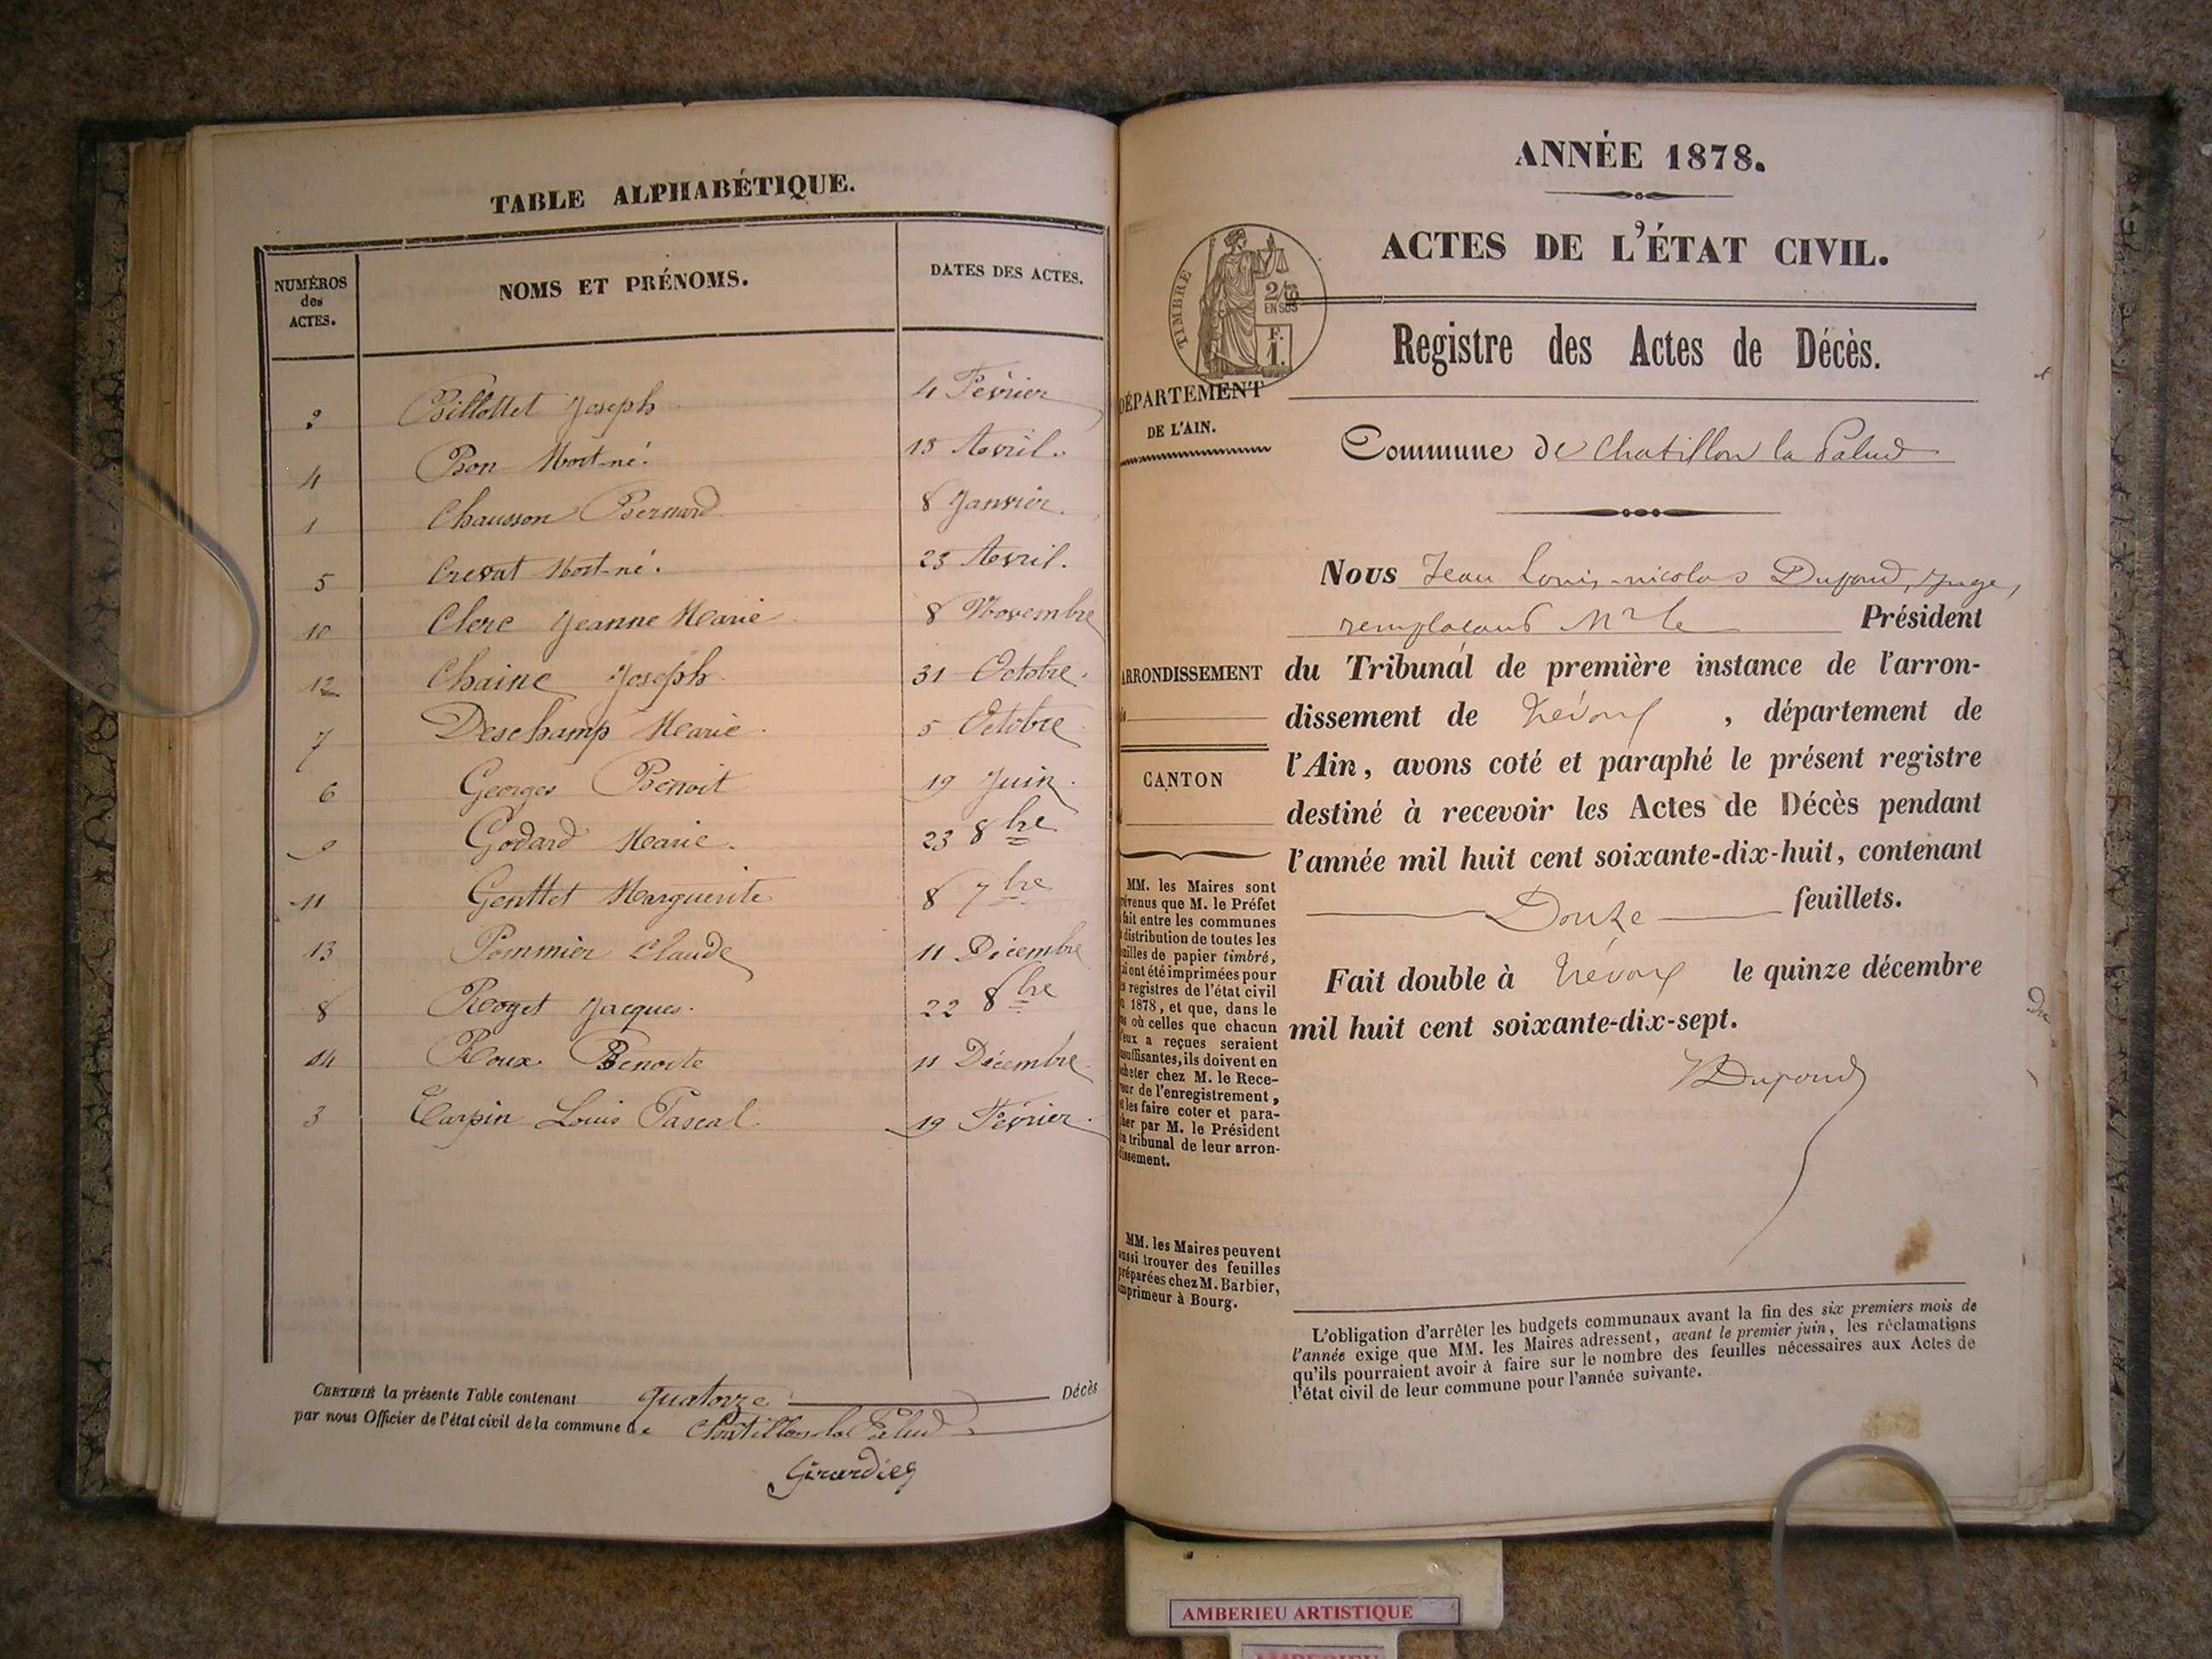 TABLE ALPHABÉTIQUE.
NUMÉROS des ACTES. NOMS ET PRÉNOMS. DATES DES ACTES.
2 Billottet Joseph 4 Février
4 Bon Mort-né. 15 Avril.
1 Chausson Bernard 8 Janvier.
5 Crevat Mort-né. 23 Avril.
10 Clerc Jeanne Marie 8 Novembre
12 Chaine Joseph. 31 Octobre.
7 Deschamp Marie. 5 Octobre
6 Georges Benoit 19 Juin.
9 Godard Marie. 23 8bre
11 Genttet Marguerite 8 7bre
13 Pommier Claude 11 Décembre
8 Jacques. 22 8bre
14 Roux Benoite 11 Décembre.
3 Carpin Louis Pascal. 19 Février.
CERTIFIÉ la présente Table contenant quatorze Décès
par nous Officier de l'état civil de la commune de Chatillon la Palud
ANNÉE 1878.
ACTES DE L'ÉTAT CIVIL.
TIMBRE
2/10
EN SUS
F.
1.
Registre des Actes de Décès.
DÉPARTEMENT
DE L'AIN.
Commune de Chatillon la Palud
Nous Jean Louis-nicolas Dupond, Juge,
remplaçant Mr le Président
ARRONDISSEMENT
du Tribunal de première instance de l'arron-
dissement de Trévoux, département de
l'Ain, avons coté et paraphé le présent registre
CANTON
destiné à recevoir les Actes de Décès pendant
l'année mil huit cent soixante-dix-huit, contenant
Douze feuillets.
Fait double à Trévoux le quinze décembre
mil huit cent soixante-dix-sept.
Dupond
MM. les Maires sont
prévenus que M. le Préfet
fait entre les communes
distribution de toutes les
feuilles de papier timbré,
qui ont été imprimées pour
les registres de l'état civil
1878, et que, dans le
cas où celles que chacun
d'eux a reçues seraient
insuffisantes, ils doivent en
acheter chez M. le Rece-
veur de l'enregistrement,
et les faire coter et para-
pher par M. le Président
du tribunal de leur arron-
dissement.
MM. les Maires peuvent
aussi trouver des feuilles
préparées chez M. Barbier,
imprimeur à Bourg.
L'obligation d'arrêter les budgets communaux avant la fin des six premiers mois de
l'année exige que MM. les Maires adressent, avant le premier juin, les réclamations
qu'ils pourraient avoir à faire sur le nombre des feuilles nécessaires aux Actes de
l'état civil de leur commune pour l'année suivante.
AMBERIEU ARTISTIQUE
AMBERIEU